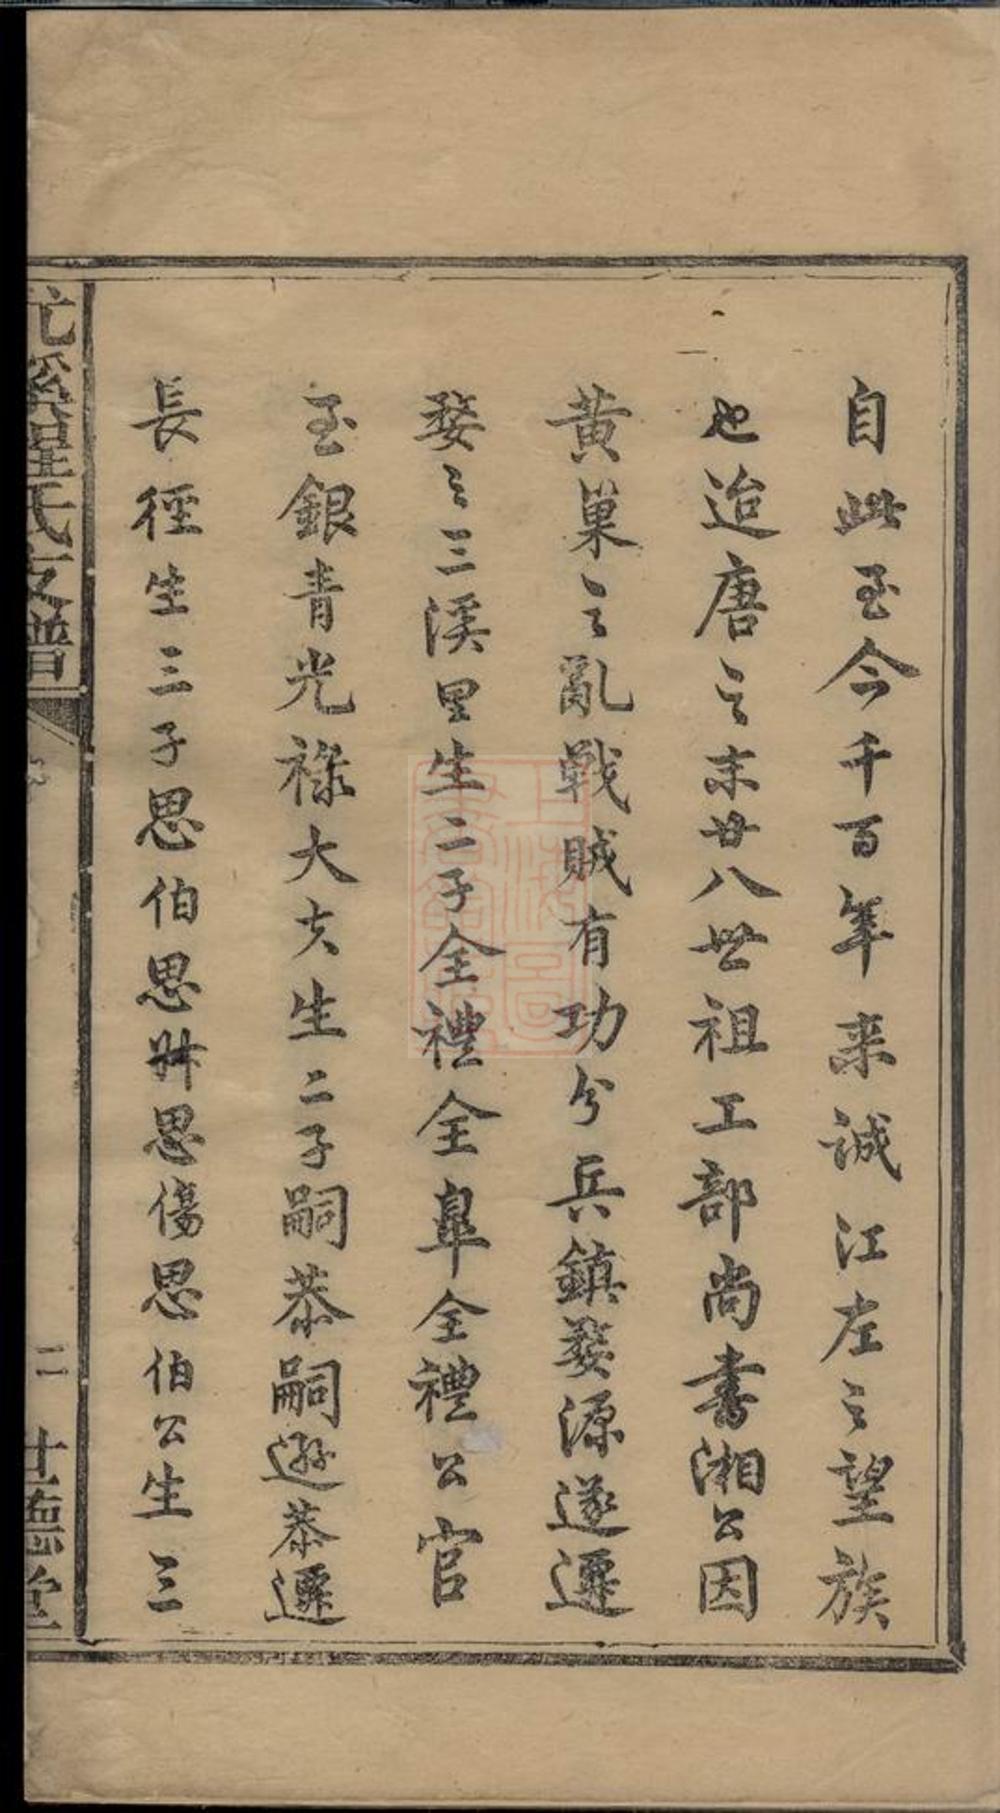 自此至今千百年来誠江左之望族
也迨唐之末廿八世祖工部尚書湘公因
黄巢之亂戰賊有功分兵鎮婺源遂遷
婺之三溪里生二子全禮全皐全禮公官
至銀青光祿大夫生二子嗣恭嗣遜恭遷
長徑生三子思伯思艸思傷思伯公生三
溪程氏支譜
二
世德堂